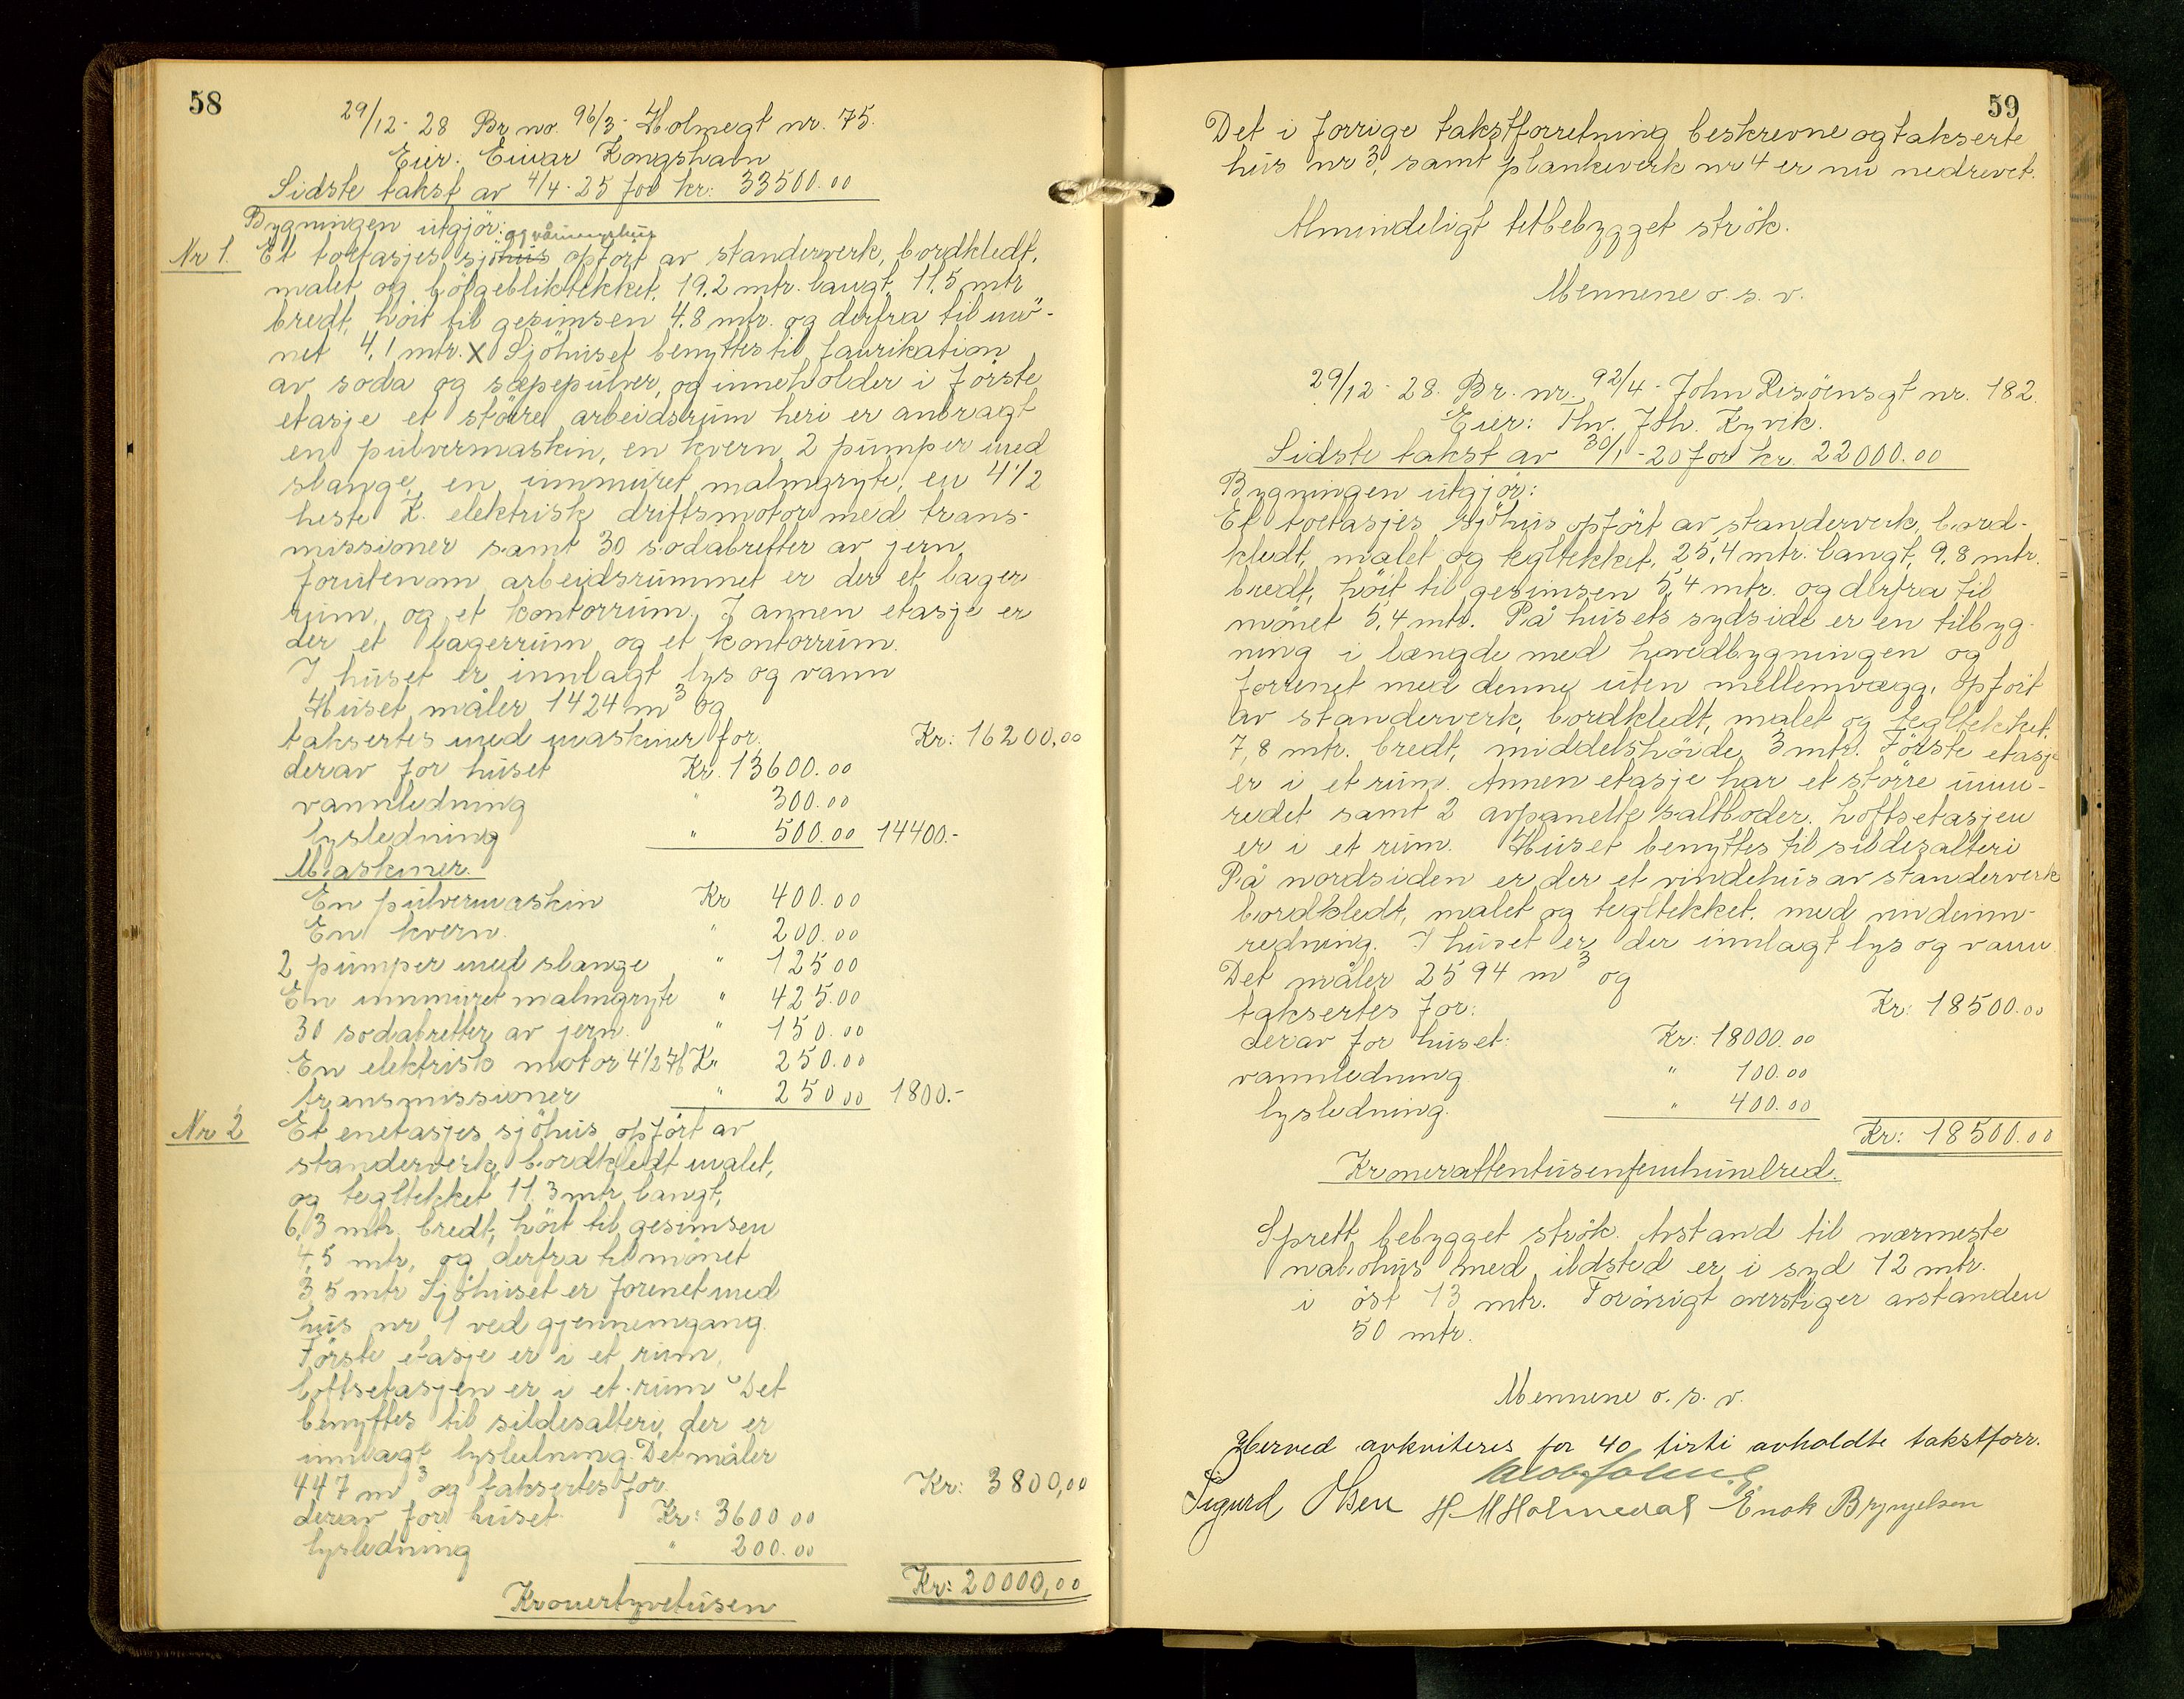 58
29/12-28 Br no. 96/3- Holmegt nr. 75.
Eier. Einar Kongshavn
Sidste takst av 4/4-25 for kr: 33500.00
Bygningen utgjör:
og våningshus
Nr 1. Et toetasjes sjöhus opfört av standerverk, bordkledt,
malet og bölgebliktekket. 19.2 mtr. langt, 11.5 mtr
bredt, höit til gesimsen 4.8 mtr. og derfra til mö-
net 4.1 mtr. X Sjöhuset benyttes til faurikation
av soda og sæpepulver, og inneholder i förste
etasje et större arbeidsrum heri er anbragt
en pulvermaskin, en kvern 2 pumper med
slange, en innmuret malmgryte, en 4 1/2
heste K. elektrisk driftsmotor med trans-
missioner samt 30 sodabretter av jern,
forutenom arbeidsrummet er der et lager
rum, og et kontorrum, I annen etasje er
der et lagerrum og et kontorrum.
I huset er innlagt lys og vann
Huset måler 1424 m3 og
taksertes med maskiner for. Kr: 16200,00
derav for huset Kr. 13600.00
vannledning " 300.00
lysledning " 500.00 14400.-
Maskiner.
En pulvermaskin Kr 400.00
En kvern. " 200.00
2 pumper med slange " 125 00
En innmuret malmgryte " 425.00
30 sodabretter av jern. " 150.00
En elektrisk motor 4 1/2 H K " 250.00
transmissioner " 250 00 1800.-
Nr 2 Et enetasjes sjöhus opfört av
standerverk, bordkledt malet,
og tegltekket 11.3 mtr langt,
6,3 mtr. bredt, höit til gesimsen
4,5 mtr, og derfra til mönet
3,5 mtr Sjöhuset er forenet med
hus nr 1 ved gjennemgang.
Förste etasje er i et rum,
loftsetasjen er i et rum Det
benyttes til sildesalteri, der er
innlagt lysledning. Det måler
447 m3 og taksertes for Kr: 3800,00
derav for huset Kr: 3600 00
lysledning " 200.00
Kr: 20000,00
Kronertyvetusen
59
Det i forrige takstforretning beskrevne og takserte
hus nr 3, samt plankeverk nr 4 er nu nedrevet.
Almindeligt tetbebygget strök.
Mennene o. s. v.
29/12-28. Br. nr. 92/4- John Risöensgt nr. 182.
Eier: Thv. Joh. Kyvik.
Sidste takst av 30/1-20 for kr. 22000.00
Bygningen utgjör:
Et toetasjes sjöhus opfört av standerverk, bord-
kledt, malet og tegltekket, 25,4 mtr. langt, 9,8 mtr.
bredt, höit til gesimsen 5,4 mtr. og derfra til
mönet 5,4 mtr. På husets sydside er en tilbyg-
ning i længde med hovedbygningen og
forrenet med denne uten mellemvægg, opfört
av standerverk, bordkledt, malet og tegltekket.
7,8 mtr. bredt, middelshöide 3 mtr. Förste etasje
er i et rum. Annen etasje har et större inn-
redet samt 2 avpanelte saltboder. Loftsetasjen
er i et rum. Huset benyttes til sildesalteri
På nordsiden er der et vindehus av standerverk
bordkledt, malet og tegltekket. med vindeinn-
redning. I huset er der innlagt lys og vann
Det måler 2594 m3 og
taksertes for: Kr: 18500.00
derav for huset: Kr: 18000.00
vannledning " 100.00
lysledning. " 400.00
Kr: 18500.00
Kroneratten­tusenfemhundred.
Sprett bebygget strök. Avstand til nærmeste
nabohus med ildsted er i syd 12 mtr.
i öst 13 mtr. Forövrigt overstiger avstanden
50 mtr.
Mennene o. s. v.
Herved avkviteres for 40 firti avholdte takstforr.
Sigurd Olsen H M Holmedal Enok Brynjelsen